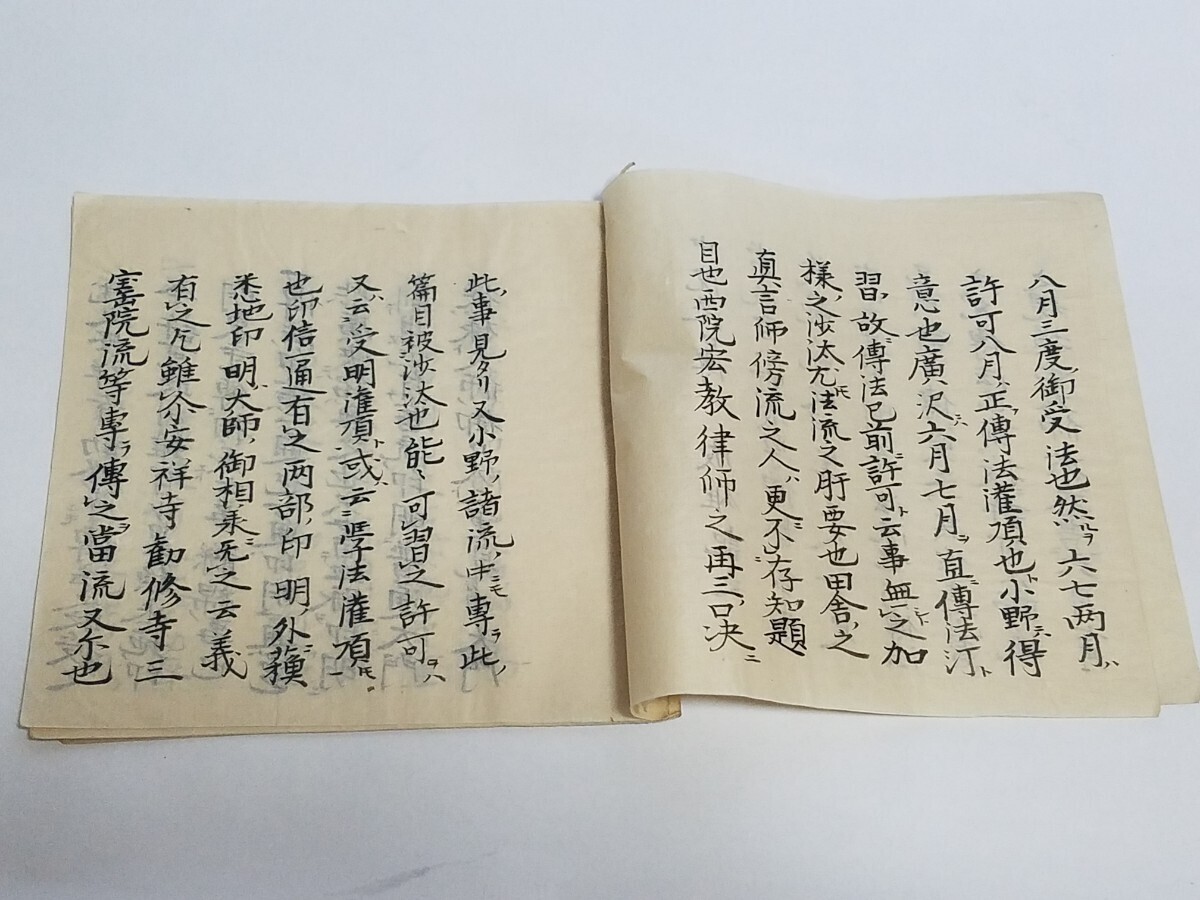 八月三度御受法也然ルヲ六七両月ハ
許可八月ハ正ク傳法灌頂也ト小野ニハ得
意也廣沢ニハ六月七月ヲ直ニ傳法汀ト
習故ニ傳法已前ニ許可ト云事無之加
様ノ之沙汰尤モ法流之肝要也田舎ノ之
真言師傍流之人ハ更ニ不存知題
目也西院宏教律師之再三口决ニ
此ノ事見タリ又小野ノ諸流ノ中ニモ専ラ此ノ
篇目被沙汰也能々可習之許可ヲハ
又ハ云受明灌頂ト或ハ云学法灌頂トモ
也印信一通有之两部ノ印明ノ外ニ蘇
悉地印明大師ノ御相承ニ在之云義
有之凡雖尒安祥寺勧修寺三
宝院流等専ラ傳之ヲ當流又尒也